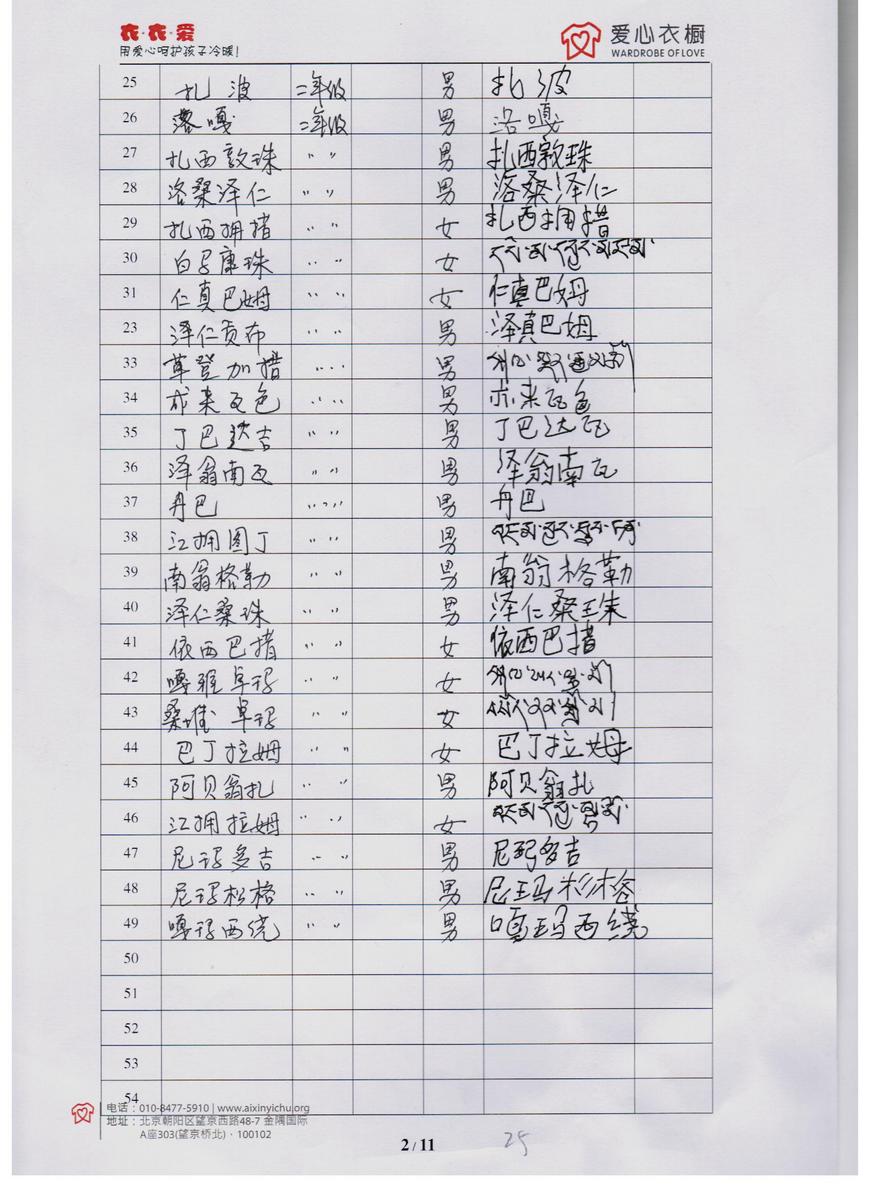 衣·衣·爱
用爱心呵护孩子冷暖!
爱心衣橱
WARDROBE OF LOVE
25 扎波 二年级 男 扎波
26 洛嘎 二年级 男 洛嘎
27 扎西敦珠 〃 〃 男 扎西敦珠
28 洛桑泽仁 〃 〃 男 洛桑泽仁
29 扎西拥措 〃 〃 女 扎西拥措
30 白马康珠 〃 〃 女
31 仁真巴姆 〃 〃 女 仁真巴姆
23 泽仁贡布 〃 〃 男 泽真巴姆
33 登加措 〃 〃 男
34 来瓦色 〃 〃 男 来瓦色
35 丁巴达吉 〃 〃 男 丁巴达瓦
36 泽翁南瓦 〃 〃 男 泽翁南瓦
37 丹巴 〃 〃 男 丹巴
38 江拥图丁 〃 〃 男
39 南翁格勒 〃 〃 男 南翁格勒
40 泽仁桑珠 〃 〃 男 泽仁桑珠
41 依西巴措 〃 〃 女 依西巴措
42 嘎雅卓玛 〃 〃 女
43 桑堆卓玛 〃 〃 女
44 巴丁拉姆 〃 〃 女 巴丁拉姆
45 阿贝翁扎 〃 〃 男 阿贝翁扎
46 江拥拉姆 〃 〃 女
47 尼玛多吉 〃 〃 男 尼玛多吉
48 尼玛松格 〃 〃 男 尼玛格
49 嘎玛西绕 〃 〃 男 嘎玛西绕
50
51
52
53
54
电话：010-8477-5910 | www.aixinyichu.org
地址：北京朝阳区望京西路48-7 金隅国际
A座303(望京桥北)·100102
2 / 11
25